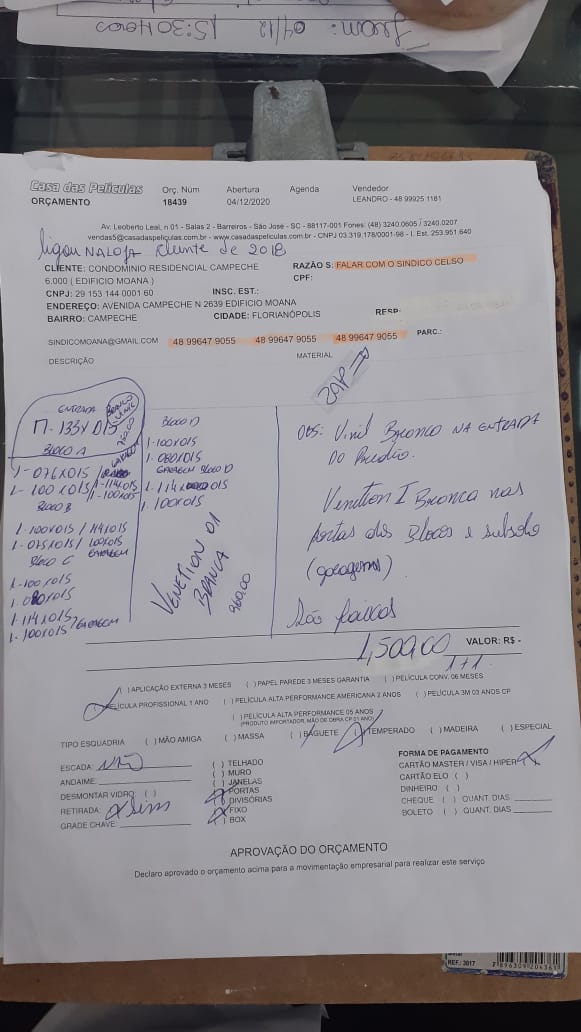 15:30 Horas
04/12
Casa das Películas
Orç. Núm Abertura Agenda Vendedor
ORÇAMENTO 18439 04/12/2020 LEANDRO - 48 99925 1181
Av. Leoberto Leal, n 01 - Salas 2 - Barreiros - São José - SC - 88117-001 Fones: (48) 3240.0605 / 3240.0207
vendas5@casadaspeliculas.com.br - www.casadaspeliculas.com.br - CNPJ 03.319.178/0001-98 - I. Est. 253.951.640
ligou NA LOJA cliente de 2018
CLIENTE: CONDOMINIO RESIDENCIAL CAMPECHE RAZÃO S: FALAR COM O SINDICO CELSO
6.000 ( EDIFICIO MOANA ) CPF:
CNPJ: 29 153 144 0001 60 INSC. EST.:
ENDEREÇO: AVENIDA CAMPECHE N 2639 EDIFICIO MOANA
BAIRRO: CAMPECHE CIDADE: FLORIANÓPOLIS RESP:
SINDICOMOANA@GMAIL.COM 48 99647 9055 48 99647 9055 48 99647 9055 PARC.:
DESCRIÇÃO MATERIAL
ENTRADA BRANCO VINIL
133X015 760,00
BLOCO A
1-076X015
1-100X015 / 1-100X015
BLOCO B
1-100X015 / 114X015
1-075X015 / 100X015
BLOCO C GARAGEM
1-100X015
1-080X015
1-114X015
1-100X015 GARAGEM
BLOCO D
1-100X015
1-080X015
GARAGEM BLOCO D
1-114X015
1-100X015
VENETION 01
BRANCA
960,00
OBS: Vinil Branco NA ENTRADA
DO Predio.
Venetion I Branca nas
portas dos Blocos e subsolo
(garagens)
São faixas
1,500,00 VALOR: R$ -
1+1
( ) APLICAÇÃO EXTERNA 3 MESES ( ) PAPEL PAREDE 3 MESES GARANTIA ( ) PELÍCULA CONV. 06 MESES
PELÍCULA PROFISSIONAL 1 ANO ( ) PELÍCULA ALTA PERFORMANCE AMERICANA 2 ANOS ( ) PELÍCULA 3M 03 ANOS CP
( ) PELÍCULA ALTA PERFORMANCE 05 ANOS
(PRODUTO IMPORTADOR, MÃO DE OBRA CP 01 ANO)
TIPO ESQUADRIA ( ) MÃO AMIGA ( ) MASSA ( ) BAGUETE ( ) TEMPERADO ( ) MADEIRA ( ) ESPECIAL
ESCADA: NÃO ( ) TELHADO FORMA DE PAGAMENTO
ANDAIME: ( ) MURO CARTÃO MASTER / VISA / HIPER X
( ) JANELAS CARTÃO ELO ( )
DESMONTAR VIDRO: ( ) PORTAS DINHEIRO ( )
RETIRADA: X Sim DIVISÓRIAS CHEQUE ( ) QUANT. DIAS
FIXO BOLETO ( ) QUANT. DIAS
GRADE CHAVE: BOX
APROVAÇÃO DO ORÇAMENTO
Declaro aprovado o orçamento acima para a movimentação empresarial para realizar este serviço
REF.: 3017 7 896309 204361